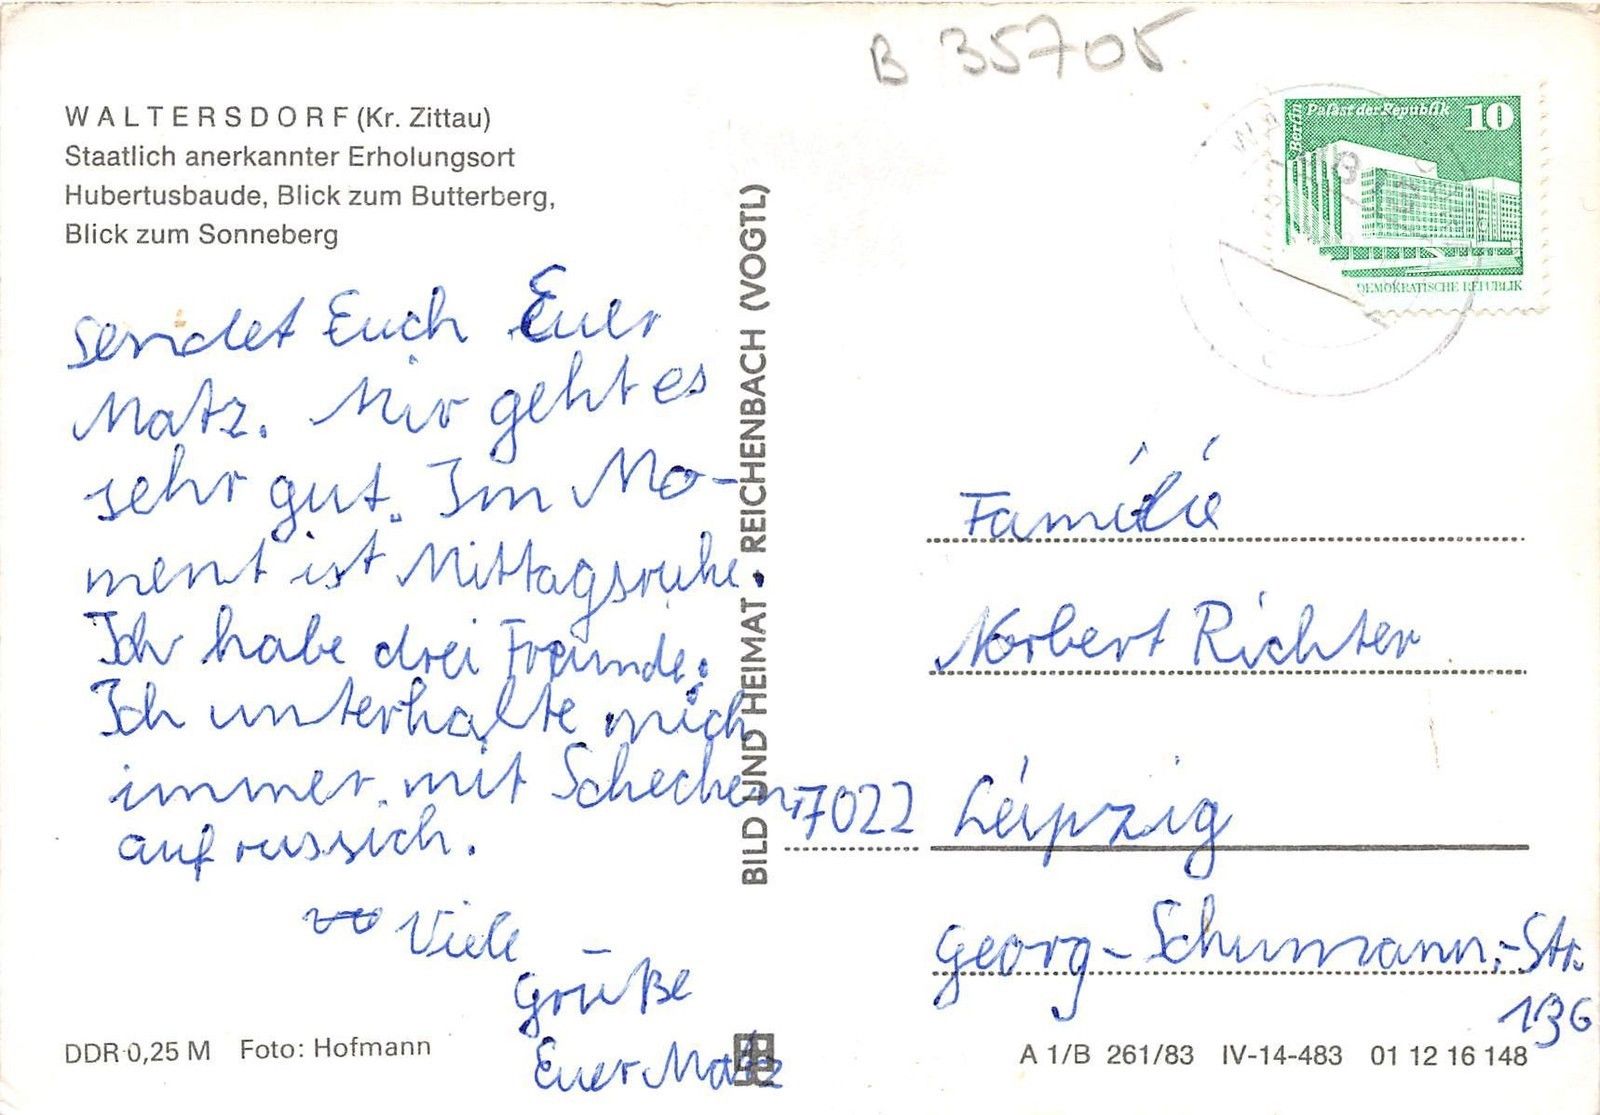 B 35705
WALTERSDORF (Kr. Zittau)
Staatlich anerkannter Erholungsort
Hubertusbaude, Blick zum Butterberg,
Blick zum Sonneberg
sendet Euch Euer
Matz. Mir geht es
sehr gut. Im Mo-
ment ist Mittagsruhe.
Ich habe drei Freunde.
Ich unterhalte mich
immer mit Schechen
auf russich.
Viele
Grüße
Euer Matz
DDR 0,25 M Foto: Hofmann
BILD UND HEIMAT • REICHENBACH (VOGTL)
Berlin
Palast der Republik 10
DEMOKRATISCHE REPUBLIK
Familie
Norbert Richter
7022 Leipzig
Georg-Schumann-Str.
136
A 1/B 261/83 IV-14-483 01 12 16 148